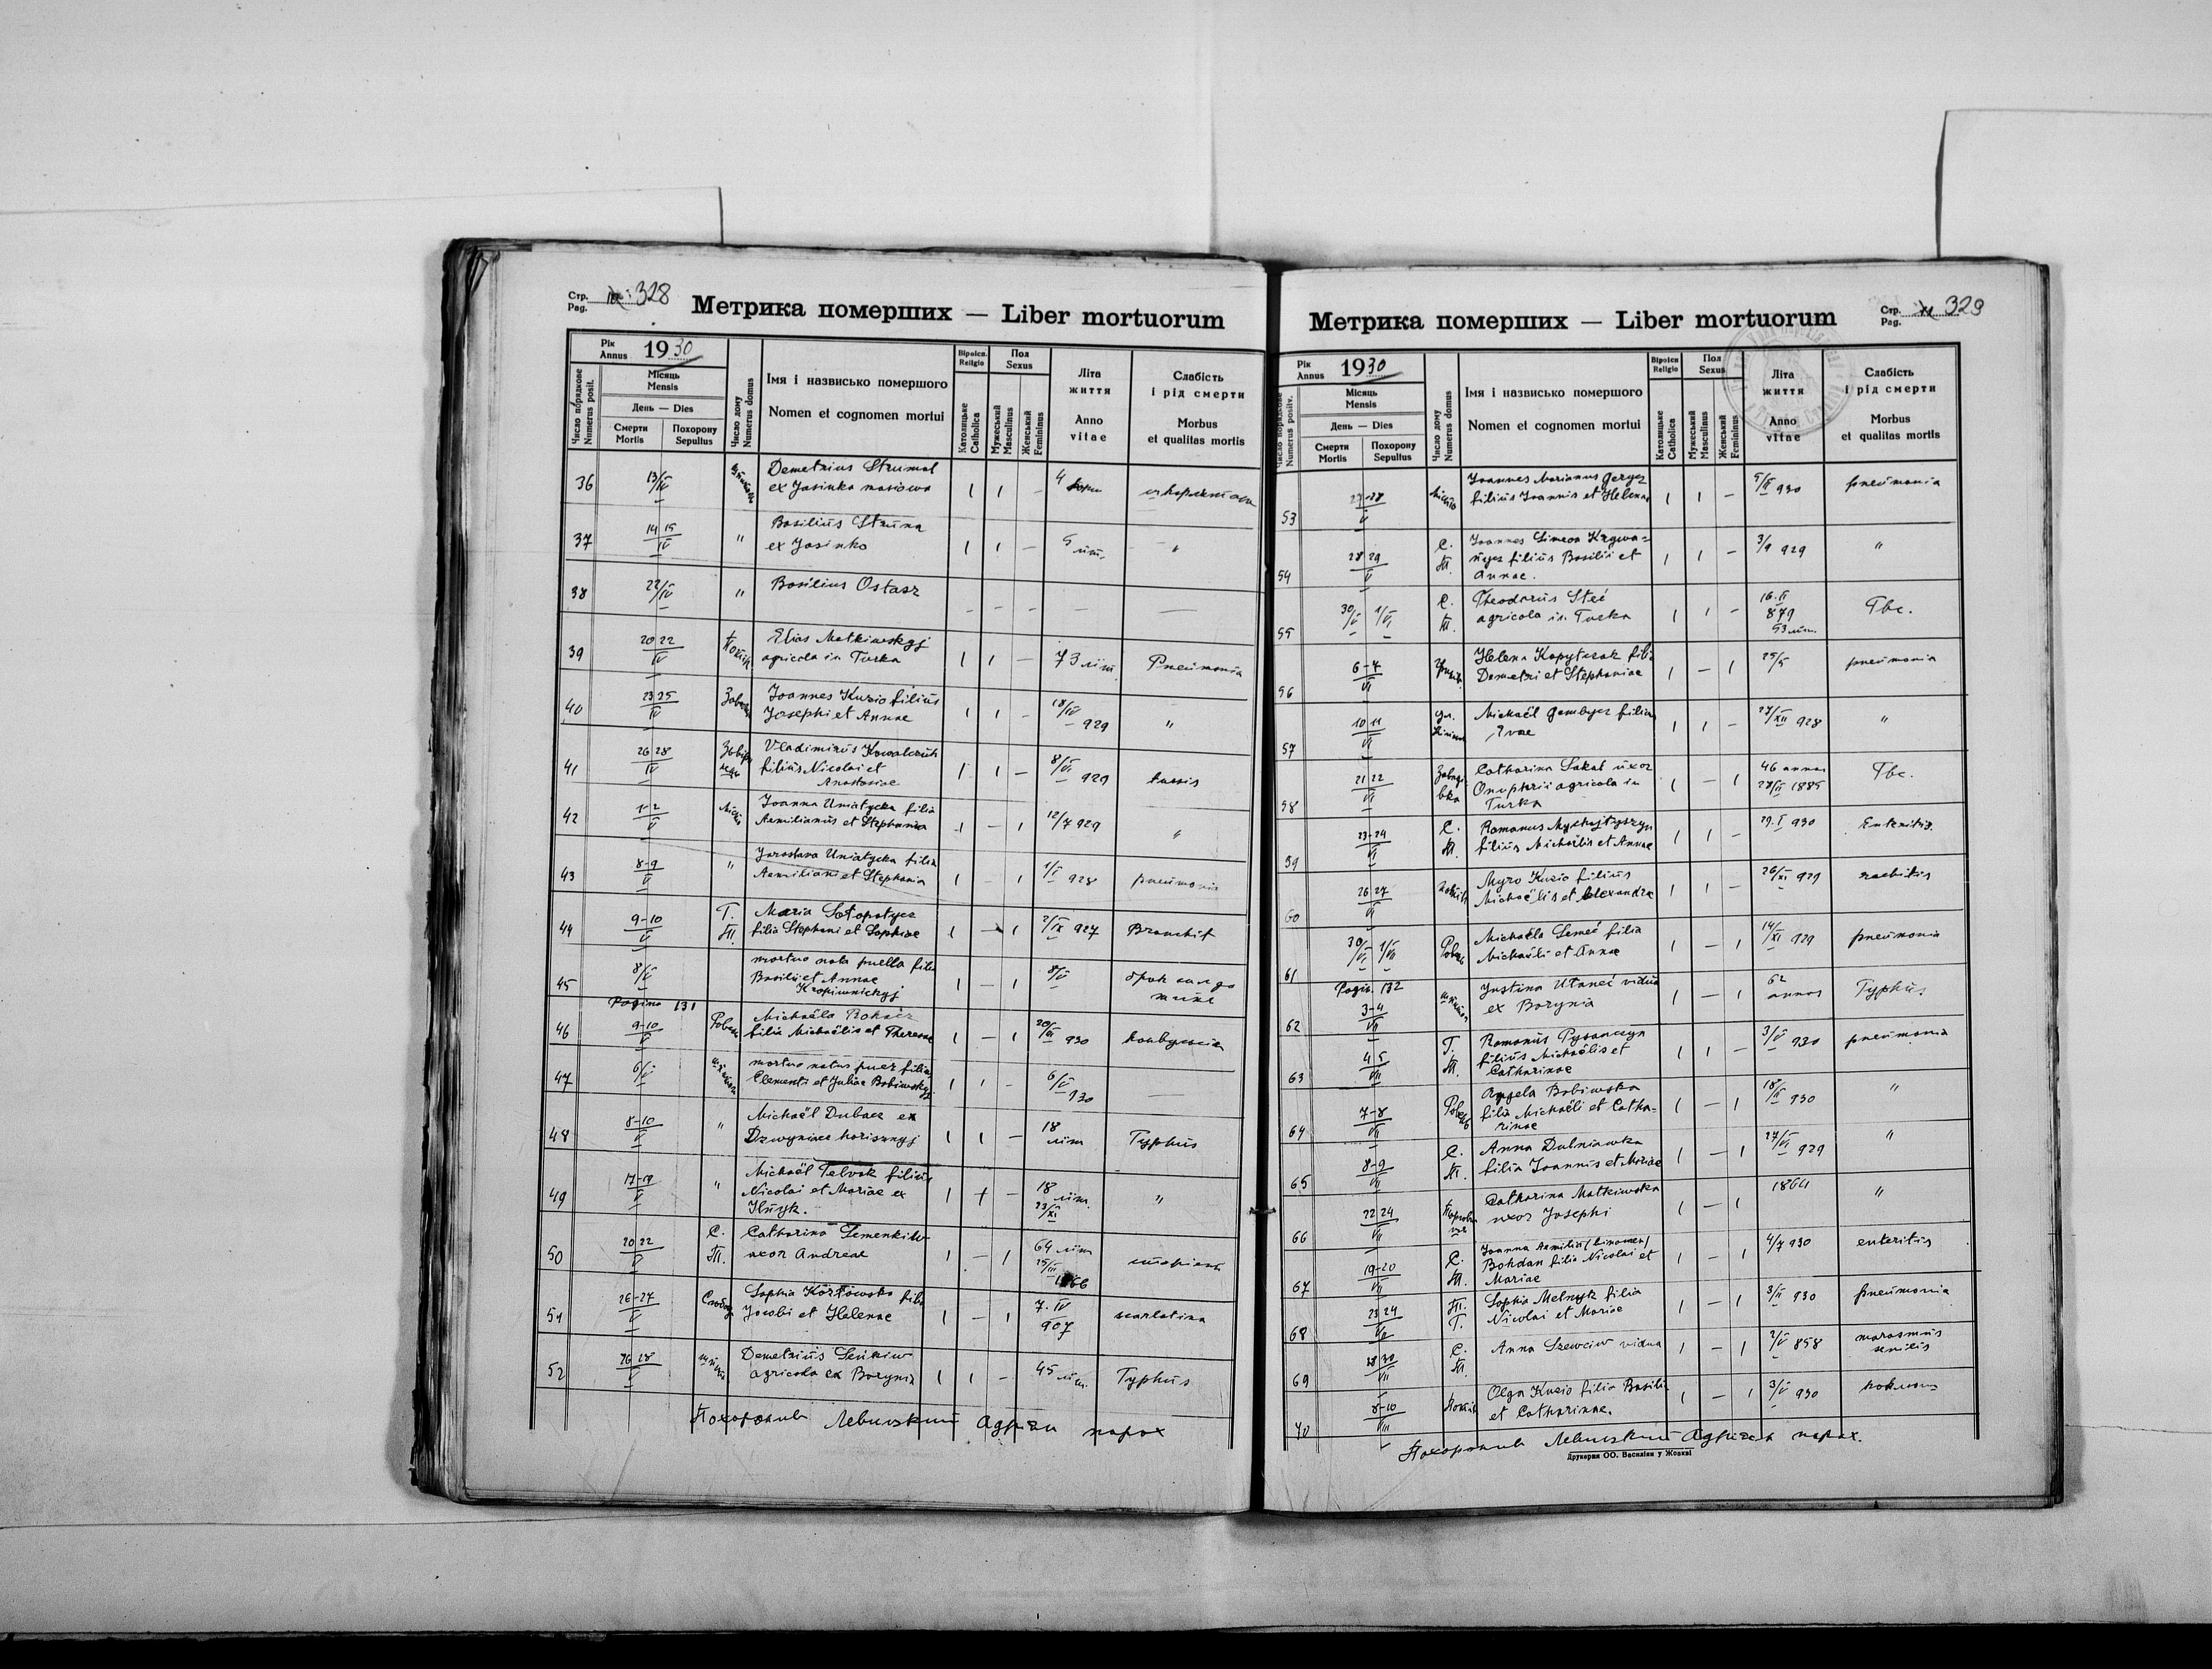 Стр. 328
Pag.
Метрика померших — Liber mortuorum
Рік 1930
Annus
Місяць
Mensis
День — Dies
Смерти Похорону
Mortis Sepultus
Число порядкове
Numerus posit.
Число дому
Numerus domus
Імя і назвисько помершого
Nomen et cognomen mortui
Віроісп.
Religio
Католицьке
Catholica
Пол
Sexus
Мужеський
Masculinus
Женський
Femininus
Літа
життя
Anno
vitae
Слабість
і рід смерти
Morbus
et qualitas mortis
36 13/IV Demetrius Strumal 4
ex Jasinka masiowa 1 1 –
37 14 15 Basilius Struna 5 літ. "
IV " ex Jasinko 1 1 –
38 22/IV " Basilius Ostasz – – – —
39 20 22 Elias Matkiwskyj
IV agricola in Turka 1 1 – 73 літ. Pneumonia
40 23 25 Joannes Kuzio filius 18/IV
IV Josephi et Annae 1 1 – 929 "
41 26 28 Vladimirus Kowalczuk 8/VI
IV filius Nicolai et 1 1 – 929 tussis
Anastasiae
42 1-2 Joanna Uniatycka filia 12/7 929
V Aemilianus et Stephania 1 – 1 "
43 8-9 " Jaroslava Uniatycka filia 1/I 928
V Aemiliani et Stephania 1 – 1 pneumonia
44 9-10 Т. Maria Sołopatycz 2/IX 927
V Ш. filia Stephani et Sophiae 1 – 1 Bronchit
45 8/V mortuo nata puella filia 8/V
Basilii et Annae 1 – 1
Kropiwnickyj
Pagina 131
46 9-10 Michaëla
V filia Michaëlis et Theresae 1 – 1 930
47 6/V mortuo natus puer filius 6/V
Clementi et Juliae Bobiwskyj 1 1 – 930 —
48 8-10 " Michaël Dubacz ex 18
V Dzwyniacz horisznyj 1 1 – літ Typhus
49 17-19 " Michaël Telvak filius 18
V Nicolai et Mariae ex 1 1 – літ. "
Ilnyk. 23/XI
50 20 22 С. Catharina Semenkiw 64 літ
V Ш. uxor Andreae 1 – 1 25/III
51 26-27 Sophia filia 7. IV
V Jacobi et Helenae 1 – 1 907 scarlatina
52 26 28 Demetrius Senkiw
V agricola ex Borynia 1 1 – 45 літ. Typhus
Похоронив Левицкий Адріян парох
Метрика померших — Liber mortuorum
Стр. 329
Pag.
Рік 1930
Annus
Місяць
Mensis
День — Dies
Смерти Похорону
Mortis Sepultus
Число порядкове
Numerus positiv.
Число дому
Numerus domus
Імя і назвисько помершого
Nomen et cognomen mortui
Віроісп
Religio
Католицьке
Catholica
Пол
Sexus
Мужеський
Masculinus
Женський
Femininus
Літа
життя
Anno
vitae
Слабість
і рід смерти
Morbus
et qualitas mortis
53 27-28 Joannes Marianus Gergez 5/II 930 pneumonia
V filius Joannis et Helenae 1 1 –
54 28 29 С. Joannes Simeon 3/9 929 "
V Ш. filius Basilii et 1 1 –
Annae.
55 30/V 1/VI С. Theodorus Steć 16.II
Ш. agricola in Turka 1 1 – 879 Tbc.
53 літ.
56 6-7 Helena Kopytczak filia 25/5 pneumonia
VI Demetri et Stephaniae 1 – 1
57 10 11 Michaël Gembycz filius 27/XII 928 "
VI Evae 1 1 –
58 21 22 Catharina Sakal uxor 46 annos Tbc.
VI Onuphrii agricola in 1 – 1 1885
Turka
59 23-24 С. Romanus Mychajłyszyn 29.I 930 Enteritis.
VI Ш. filius Michaëlis et Annae 1 1 –
60 26 27 Myro Kuzio filius 26/XI 929 rachitis
VI Michaëlis et Alexandrae 1 1 –
61 30/VI 1/VII Michaëla Semeć filia 14/XI 929 pneumonia
Michaëli et Annae 1 – 1
Pagin. 132
62 3-4 Justina Utaneć vidua 62 annos Typhus.
VII ex Borynia 1 – 1
63 4 5 Т. Romanus Pysanczyn 3/V 930 pneumonia
VII Ш. filius Michaëlis et 1 1 –
Catharinae
64 7-8 Angela Bobiwska 18/II 930 "
VII filia Michaëli et Catha- 1 – 1
rinae
65 8-9 С. Anna Dulniawka 27/VI 929 "
VII Ш. filia Joannis et Mariae 1 – 1
66 22 24 Catharina Matkiwska "
VII uxor Josephi 1 – 1
67 19-20 С. Joanna Aemilia (binomen) 4/7 930 enteritis
VII Ш. Bohdan filia Nicolai et 1 – 1
Mariae
68 23 24 Ш. Sophia Melnyk filia 3/II 930 pneumonia
VII Т. Nicolai et Mariae 1 – 1
69 28 30 С. Anna Szewciw vidua 1 – 1 2/V 858 marasmus
VII Ш. senilis
70 8-10 Olga Kuzio filia Basilii 3/V 930
VIII et Catharinae. 1 – 1
Похоронив Левицкий Адріян парох.
Друкарня ОО. Василіян у Жовкві